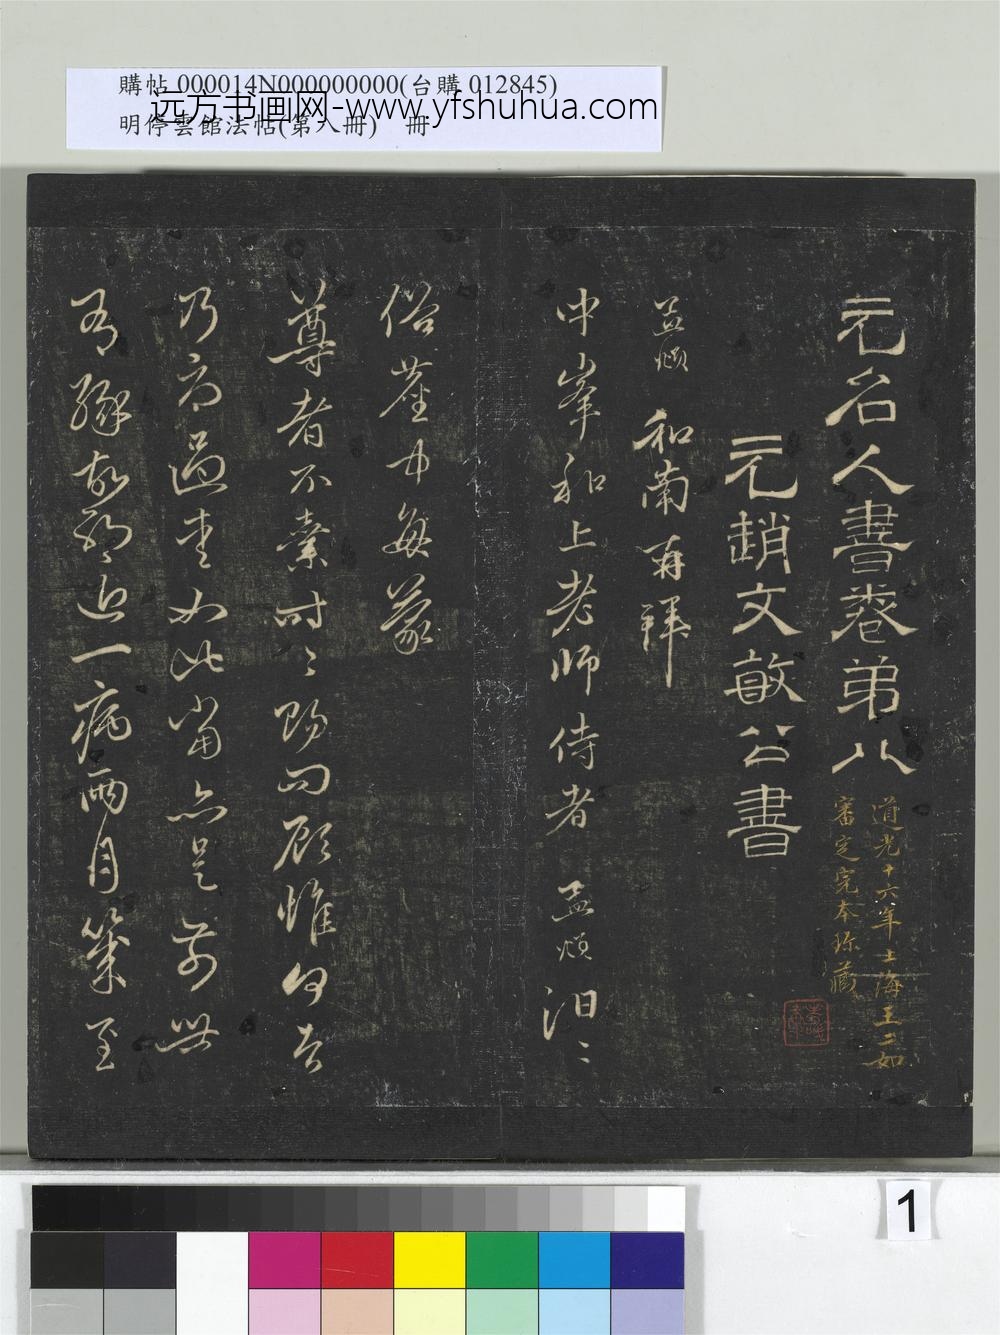 購帖 000014N000000000(台購 012845)
远方书画网-www.yfshuhua.com
明停雲館法帖(第八冊) 冊
元名人書卷弟八
道光十六年上海王二如
審定完本珍藏
元趙文敏公書
孟頫 和南再拜
中峯和上老師侍者 孟頫汨〻
俗塵中每蒙
尊者不棄時〻賜問顧惟何者
乃過愛如此當亦是前世
有緣故耶近一病兩月幾至
1